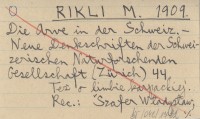 RIKLI M. 1909.
Die Arve in der Schweiz. –
Neue Denkschriften der Schwei-
zerischen Naturforschenden
Gesellschaft (Zürich) 44.
Rec.: Szafer Władysław,